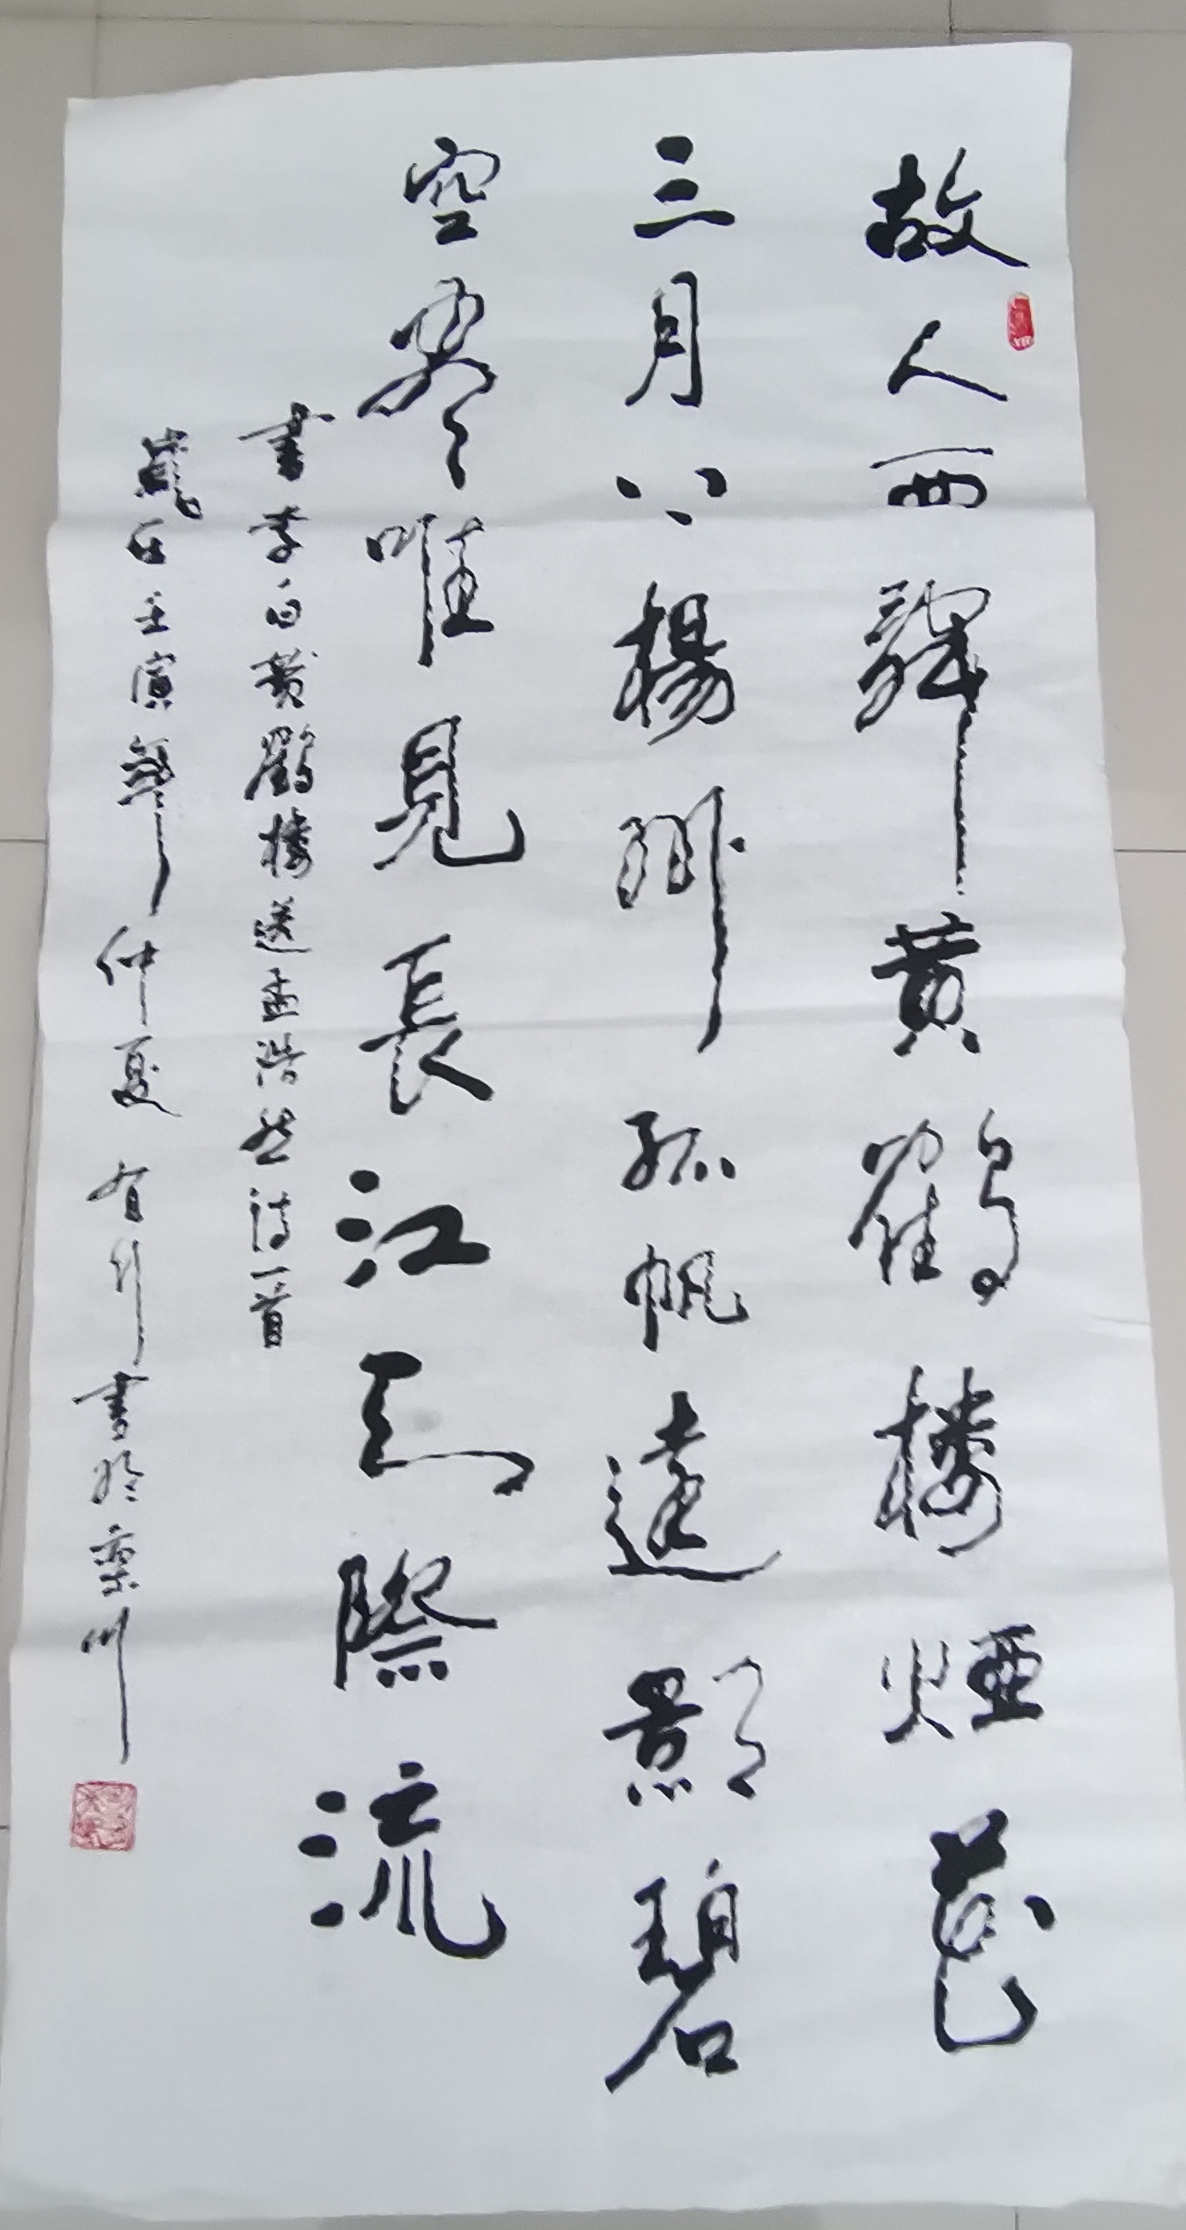 故人西辭黄鶴樓煙花
三月下揚州孤帆遠影碧
空盡唯見長江天際流
書李白黄鶴樓送孟浩然詩一首
歲在壬寅年仲夏有書於栾川